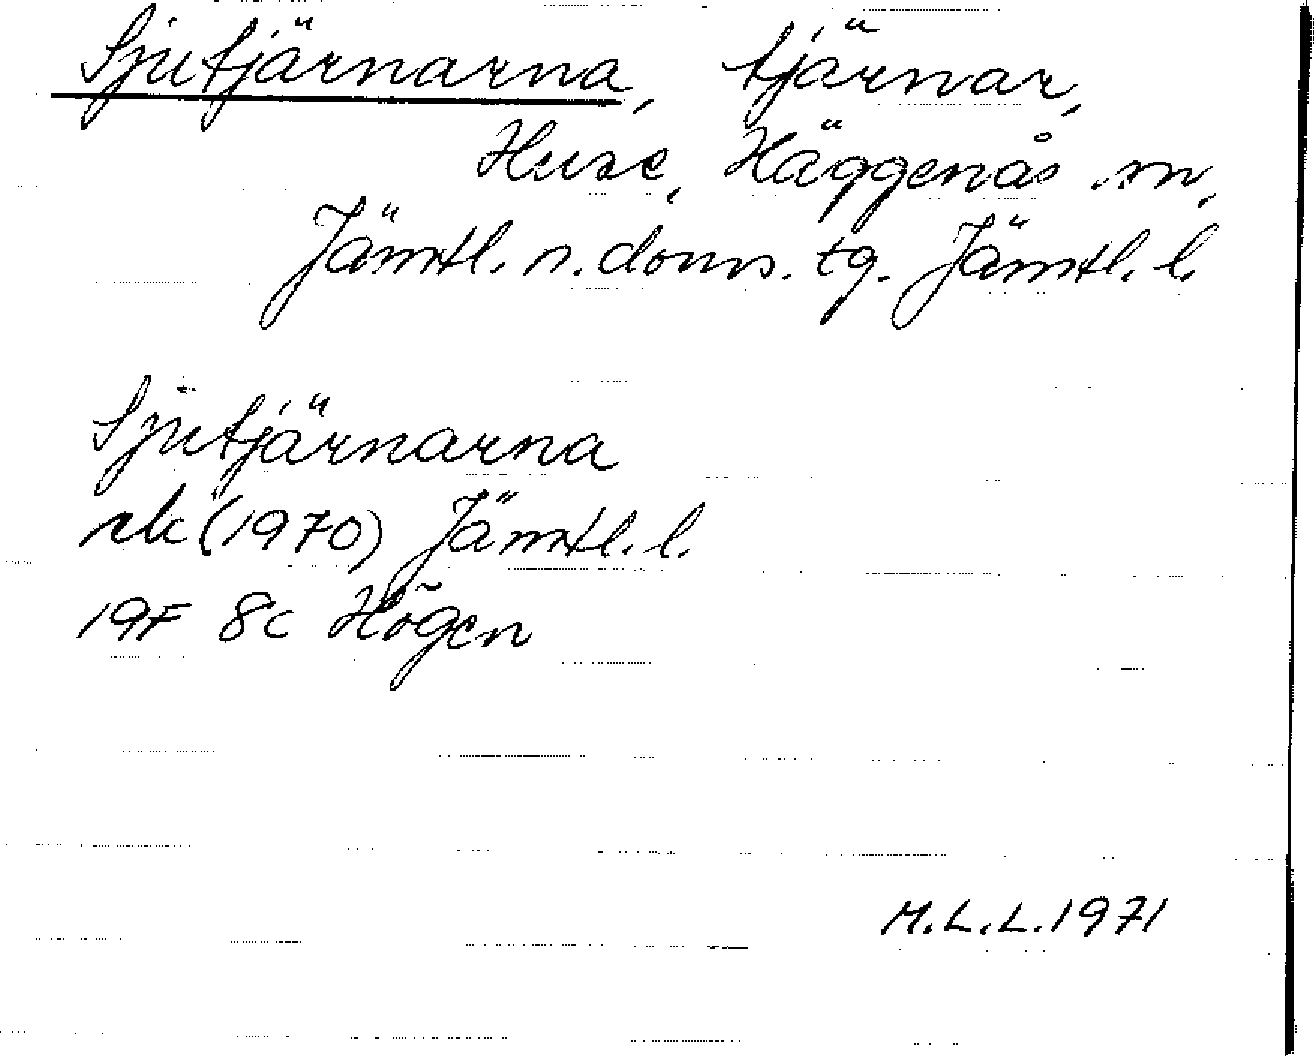 Sjutjärnarna, tjärnar,
Huse, Häggenås sn,
Jämtl. n. doms. tg. Jämtl. l.
Sjutjärnarna
rk (1970) Jämtl. l.
19F 8c Högen
M.L.L. 1971